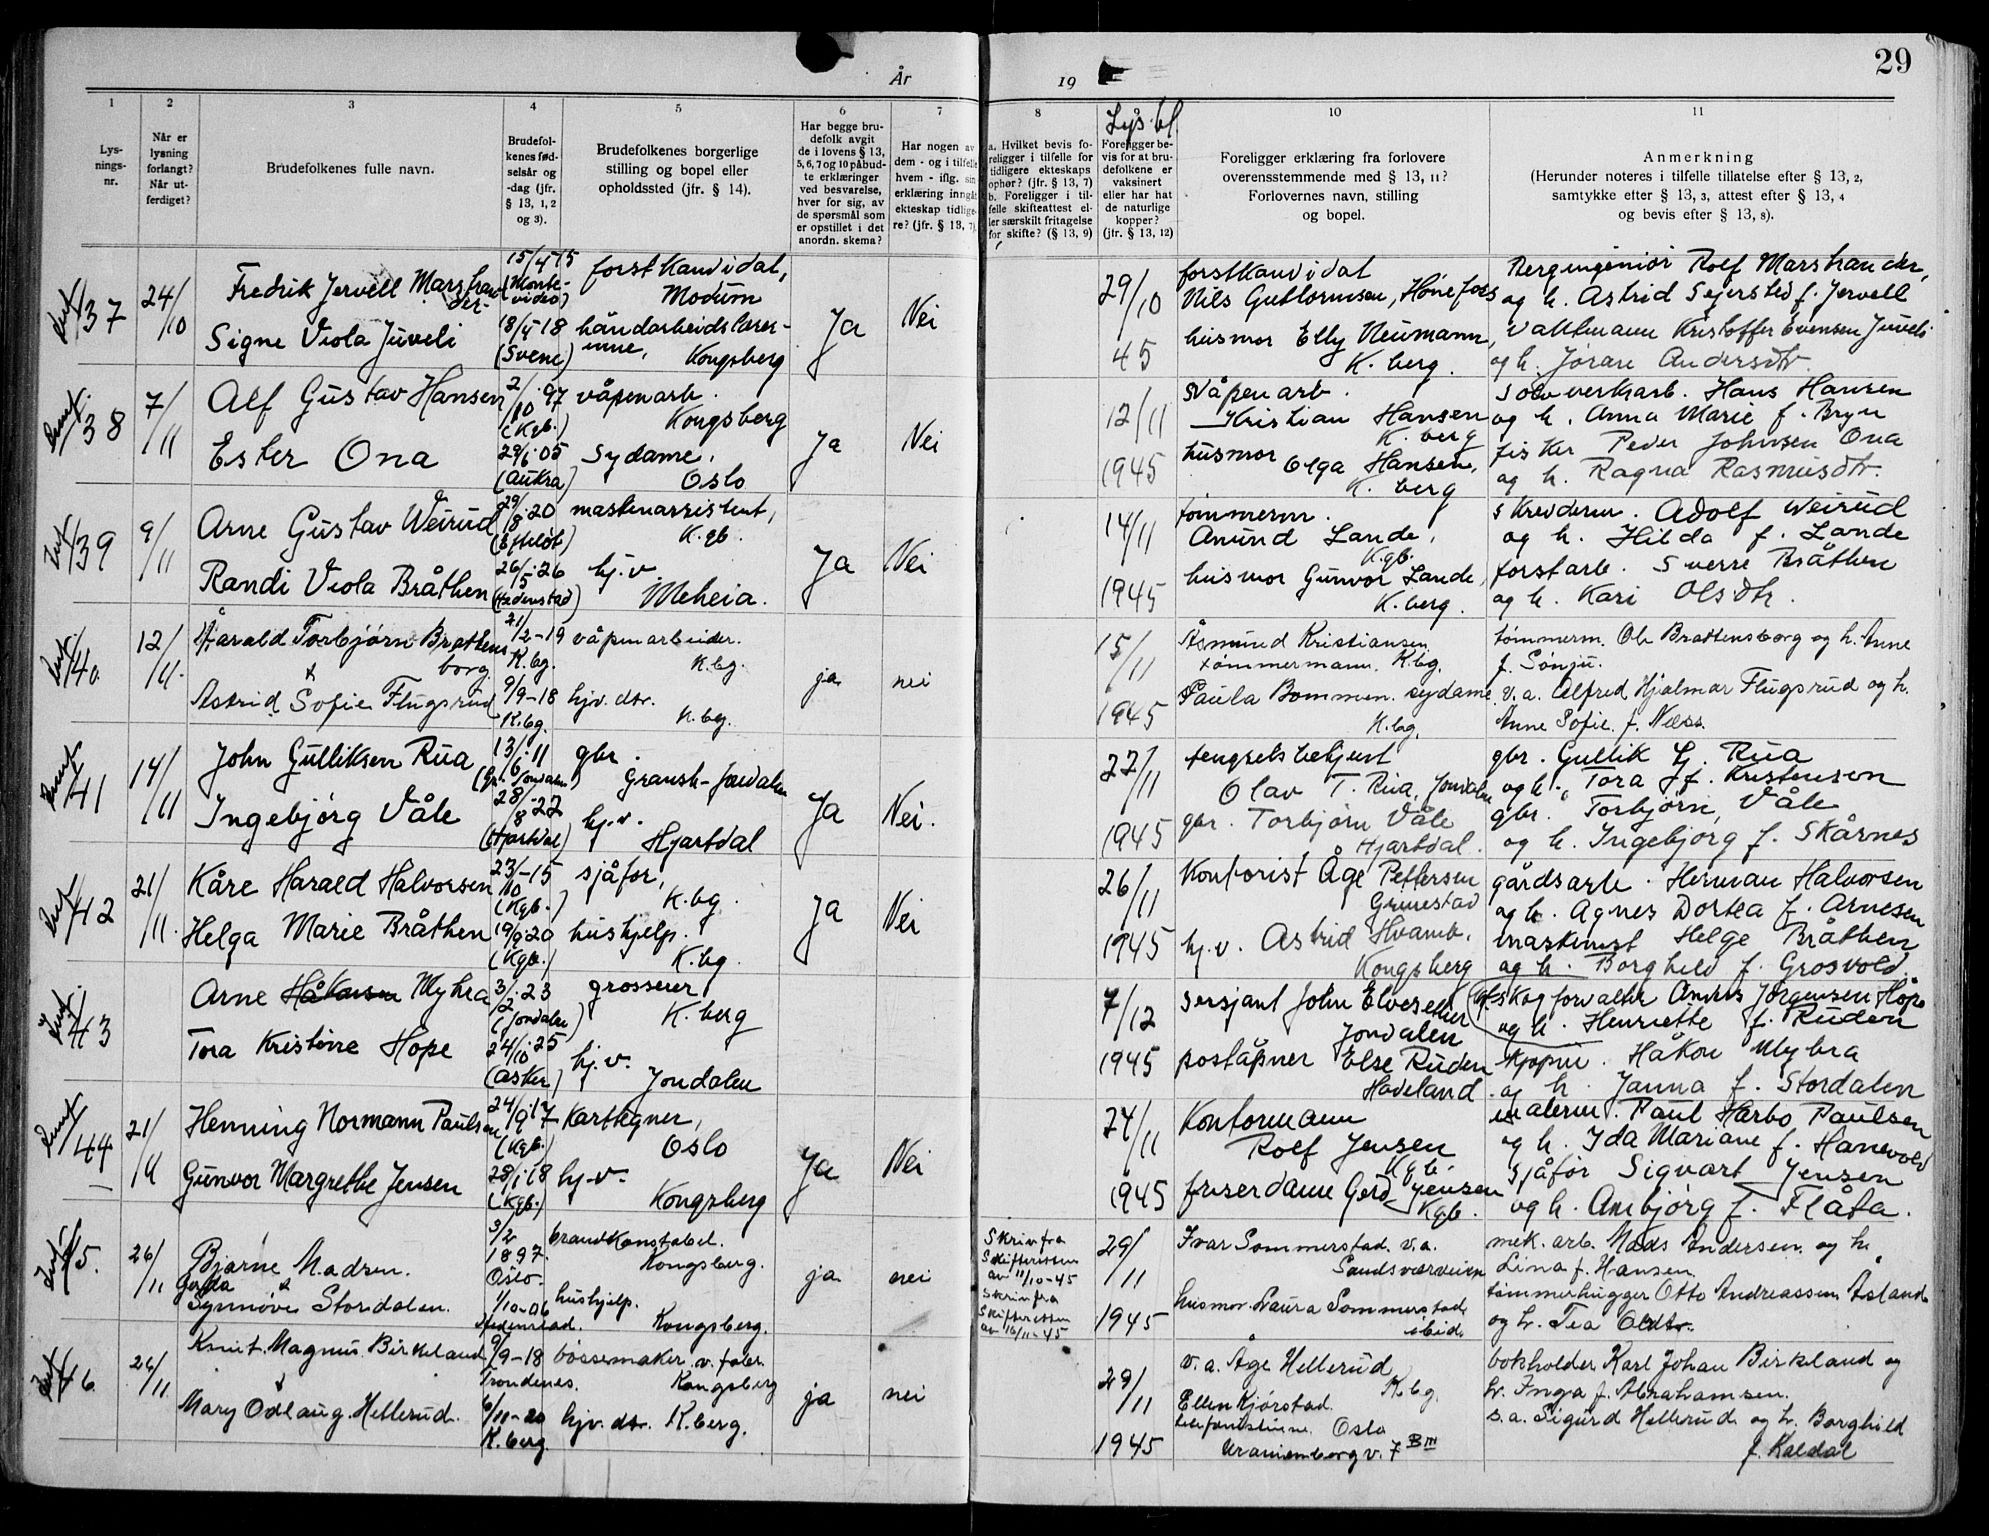 29
År 19
1 2 3 4 5 6 7 8 10 11
Lys-
nings-
nr.
Når er
lysning
forlangt?
Når ut-
ferdiget?
Brudefolkenes fulle navn.
Brudefol-
kenes fød-
selsår og
-dag (jfr.
§ 13, 1, 2
og 3).
Brudefolkenes borgerlige
stilling og bopel eller
opholdssted (jfr. § 14).
Har begge bru-
defolk avgit
de i lovens § 13,
5, 6, 7 og 10 påbud-
te erklæringer
ved besvarelse,
hver for sig, av
de spørsmål som
er opstillet i det
anordn. skema?
Har nogen av
dem - og i tilfelle
hvem - iflg. sin
erklæring inngått
ekteskap tidlige-
re? (jfr. § 13, 7).
a. Hvilket bevis fo-
religger i tilfelle for
tidligere ekteskaps
ophør? (jfr. § 13, 7)
b. Foreligger i til-
felle skifteattest el-
ler særskilt fritagelse
for skifte? (§ 13, 9)
Lys.bl.
Foreligger be-
vis for at bru-
defolkene er
vaksinert
eller har hat
de naturlige
kopper?
(jfr. § 13, 12)
Foreligger erklæring fra forlovere
overensstemmende med § 13, 11?
Forlovernes navn, stilling
og bopel.
Anmerkning
(Herunder noteres i tilfelle tillatelse efter § 13, 2,
samtykke efter § 13, 3, attest efter § 13, 4
og bevis efter § 13, 8).
37 24/10 Fredrik Jervell Marstran-
der 15/4 15 (Monte-
video) forstkandidat,
Modum
Signe Viola Juveli 18/4 18 (Svene) håndarbeidslærer-
inne, Kongsberg Ja Nei
29/10 45 forstkandidat
Nils Guttormsen, Hønefoss
husmor Elly Neumann,
K.berg.
Bergingeniør Rolf Marstrander,
og h. Astrid Sejersted f. Jervell
Vaktmann Kristoffer Evensen Juveli
og h. Jøran Andersdtr.
38 7/11 Alf Gustav Hansen 2/10.97 (Kgb.) våpenarb.
Kongsberg
Ester Ona 29/6.05 (Aukra) Sydame,
Oslo Ja Nei
12/11 1945 Våpenarb.
Kristian Hansen
K.berg
husmor Olga Hansen,
K.berg
Sølvverksarb. Hans Hansen
og h. Anna Marie f. Bryn
fisker Peder Johnsen Ona
og h. Ragna Rasmusdtr.
39 9/11 Arne Gustav Weirud 29/8.20 (Efteløt) maskinassistent,
K.gb.
Randi Viola Bråthen 26/5.26 (Hedenstad) hj.v.
Meheia. Ja Nei
14/11 1945 tømmerm.
Anund Lande,
Kgb.
husmor Gunvor Lande,
K.berg.
skredderm. Adolf Weirud
og h. Hilda f. Lande
forstarb. Sverre Bråthen
og h. Kari Olsdtr.
40. 12/11. Harald Torbjørn Brattens
borg 21/2-19 K.bg. våpenarbeider.
K.bg.
Astrid Sofie Flugsrud 9/9-18 K.bg. hjv. dtr.
K.bg. ja nei
15/11 1945 Åsmund Kristiansen
tømmermann. K.bg.
Paula Bommen. sydame
K.bg.
tømmerm. Ole Brattensborg og h. Anne
f. Sønju.
v.a. Alfred Hjalmar Flugsrud og h.
Anne Sofie f. Næss.
41 14/11 John Gulliksen Rua 13/6.11 (Gr. Jondalen) gbr.
Gransh.-Jondalen
Ingebjørg Våle 28/8.22 (Hjartdal) hj.v.
Hjartdal Ja Nei.
22/11 1945 fengselsbetjent
Olav T. Rua, Jondalen
gbr. Torbjørn Våle
Hjartdal.
gbr. Gullik G. Rua
og h. Tora f. Kristensen
gbr. Torbjørn Våle
og h. Ingebjørg f. Skårnes
42 21/11. Kåre Harald Halvorsen 23/10-15 (Kgb.) sjåfør,
K.bg.
Helga Marie Bråthen 19/9.20 (Kgb.) hushjelp.
K.bg. Ja Nei
26/11 1945 Kontorist Åge Pettersen
Grunestad
hj.v. Astrid Hvamb.
Kongsberg
gårdsarb. Herman Halvorsen
og h. Agnes Dortea f. Arnesen
maskinist Helge Bråthen
og h. Borghild f. Grosvold.
43 Arne Håkonsen Myhra 3/2.23 (Jondalen) grosserer
K.berg
Tora Kristine Hope 24/10.25 (Asker) hj.v.
Jondalen
7/12 1945 sersjant John Elveseter
Jondalen
poståpner Else Ruden
Hadeland
skogforvalter Anders Jørgensen Hope
og h. Henriette f. Ruden
kjøpm. Håkon Myhra
og h. Janna f. Stordalen
44 21/11 Henning Normann Paulsen 24/9.17 (Kgb.) Karttegner,
Oslo
Gunvor Margrethe Jensen 28/1.18 (Kgb.) hj.v.
Kongsberg Ja Nei
24/11 1945 Kontormann
Rolf Jensen
Kgb.
friserdame Gerd Jensen
Kgb.
malerm. Paul Harbo Paulsen
og h. Ida Mariane f. Hanevold
Sjåfør Sigvart Jensen
og h. Ambjørg f. Flåta.
45. 26/11 Bjarne Madsen. 3/2 1897. Oslo. brandkonstabel.
Kongsberg.
Gerda
Synnøve Stordalen. 1/10-06 Hedenstad. hushjelp.
Kongsberg. ja nei
Skriv fra
Skifteretten
av 11/10-45
Skriv fra
Skifteretten
av 16/11-45
29/11 1945 Ivar Sommerstad. v.a.
Sandsværveien
husmor Laura Sommerstad,
ibid.
mek. arb. Mads Andersen og h.
Lina f. Hansen.
tømmerhugger Otto Andreassen Åsland
og h. Tea Olsdtr.
46 26/11 Knut Magnus Birkeland 9/9-18 Trondenes. bøssemaker v. fabr.
Kongsberg
Mary Odlaug Hellerud. 6/11-20 K.berg. hjv. dtr. K.berg. ja nei
29/11 1945 v.a. Åge Hellerud
K.bg.
Ellen Kjørstad.
telefonistinne. Oslo
Uranienborgv. 7 BIII
bokholder Karl Johan Birkeland og
h. Inga f. Abrahamsen.
s.a. Sigurd Hellerud og h. Borghild
f. Kaldal